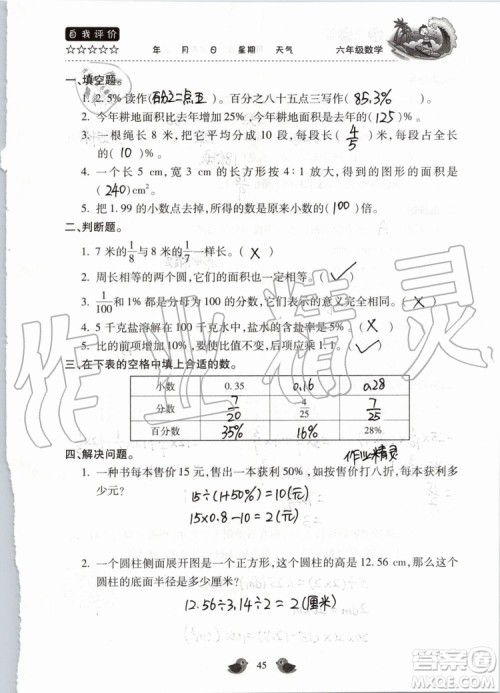 自我评价
☆☆☆☆☆ 年 月 日 星期 天气 六年级数学
一、填空题。
1. 2.5%读作(百分之二点五)。百分之八十五点三写作( 85.3% )。
2. 今年耕地面积比去年增加25%,今年耕地面积是去年的(125)%。
3. 一根绳长8米,把它平均分成10段,每段长( 4/5 )米,每段占全长
的( 10 )%。
4. 一个长5 cm,宽3 cm的长方形按4∶1放大,得到的图形的面积是
(240)cm²。
5. 把1.99的小数点去掉,所得的数是原数的( 100 )倍。
二、判断题。
1. 7米的1/8与8米的1/7一样长。( X )
2. 周长相等的两个圆,它们的面积也一定相等。( ✓ )
3. 1/100和1%都是分母为100的分数,它们表示的意义完全相同。( X )
4. 5千克盐溶解在100千克水中,盐水的含盐率是5%。( X )
5. 比的前项增加10%,要使比值不变,后项应乘1.1。( ✓ )
三、在下表的空格中填上合适的数。
小数 0.35 0.16 0.28
分数 7/20 4/25 7/25
百分数 35% 16% 28%
四、解决问题。
作业精灵
1. 一种书每本售价15元,售出一本获利50%,如果每本售价打八折,每本获利
多少元?
15÷(1+50%)=10(元)
15×0.8-10=2(元)
2. 一个圆柱侧面展开图是一个正方形,这个圆柱的高是12.56 cm,那么这个
圆柱的底面半径是多少厘米?
12.56÷3.14÷2=2(厘米)
45
作业精灵